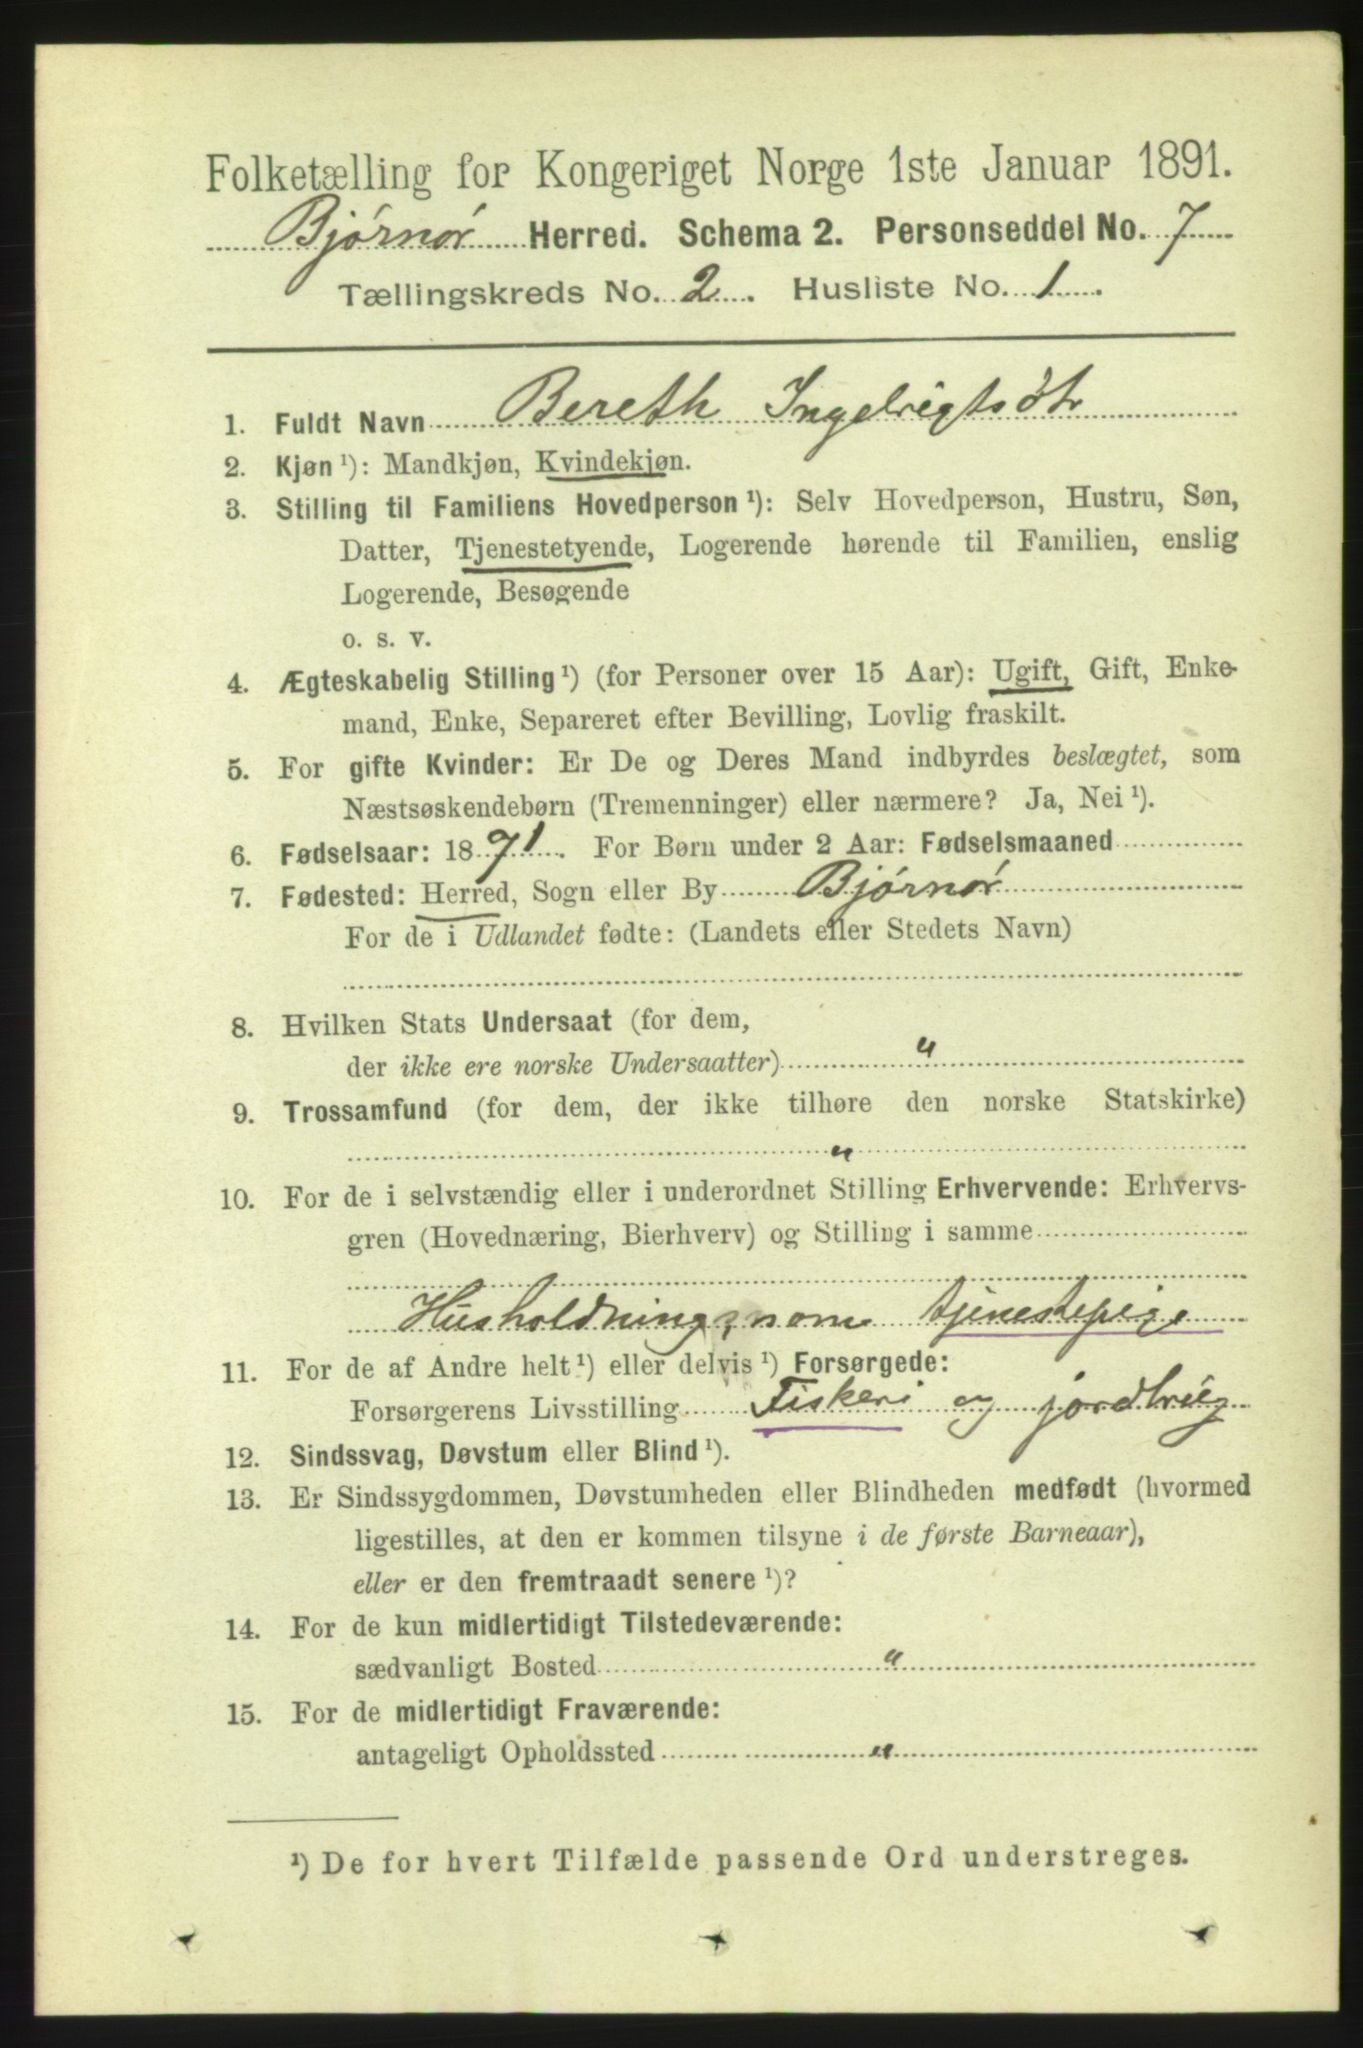 Folketælling for Kongeriget Norge 1ste Januar 1891.
Bjørnør Herred. Schema 2. Personseddel No. 7
Tællingskreds No. 2. Husliste No. 1.
1. Fuldt Navn Bereth Ingebrigtsdtr
2. Kjøn ¹): Mandkjøn, Kvindekjøn.
3. Stilling til Familiens Hovedperson ¹): Selv Hovedperson, Hustru, Søn,
Datter, Tjenestetyende, Logerende hørende til Familien, enslig
Logerende, Besøgende
o. s. v.
4. Ægteskabelig Stilling ¹) (for Personer over 15 Aar): Ugift, Gift, Enke-
mand, Enke, Separeret efter Bevilling, Lovlig fraskilt.
5. For gifte Kvinder: Er De og Deres Mand indbyrdes beslægtet, som
Næstsøskendebørn (Tremenninger) eller nærmere? Ja, Nei ¹).
6. Fødselsaar: 1871. For Børn under 2 Aar: Fødselsmaaned
7. Fødested: Herred, Sogn eller By Bjørnør
For de i Udlandet fødte: (Landets eller Stedets Navn)
8. Hvilken Stats Undersaat (for dem,
der ikke ere norske Undersaatter) "
9. Trossamfund (for dem, der ikke tilhøre den norske Statskirke)
"
10. For de i selvstændig eller i underordnet Stilling Erhvervende: Erhvervs-
gren (Hovednæring, Bierhverv) og Stilling i samme
Husholdning, som tjenestepige
11. For de af Andre helt ¹) eller delvis ¹) Forsørgede:
Forsørgerens Livsstilling Fiskeri og jordbrug
12. Sindssvag, Døvstum eller Blind ¹).
13. Er Sindssygdommen, Døvstumheden eller Blindheden medfødt (hvormed
ligestilles, at den er kommen tilsyne i de første Barneaar),
eller er den fremtraadt senere ¹)?
14. For de kun midlertidigt Tilstedeværende:
sædvanligt Bosted "
15. For de midlertidigt Fraværende:
antageligt Opholdssted "
¹) De for hvert Tilfælde passende Ord understreges.